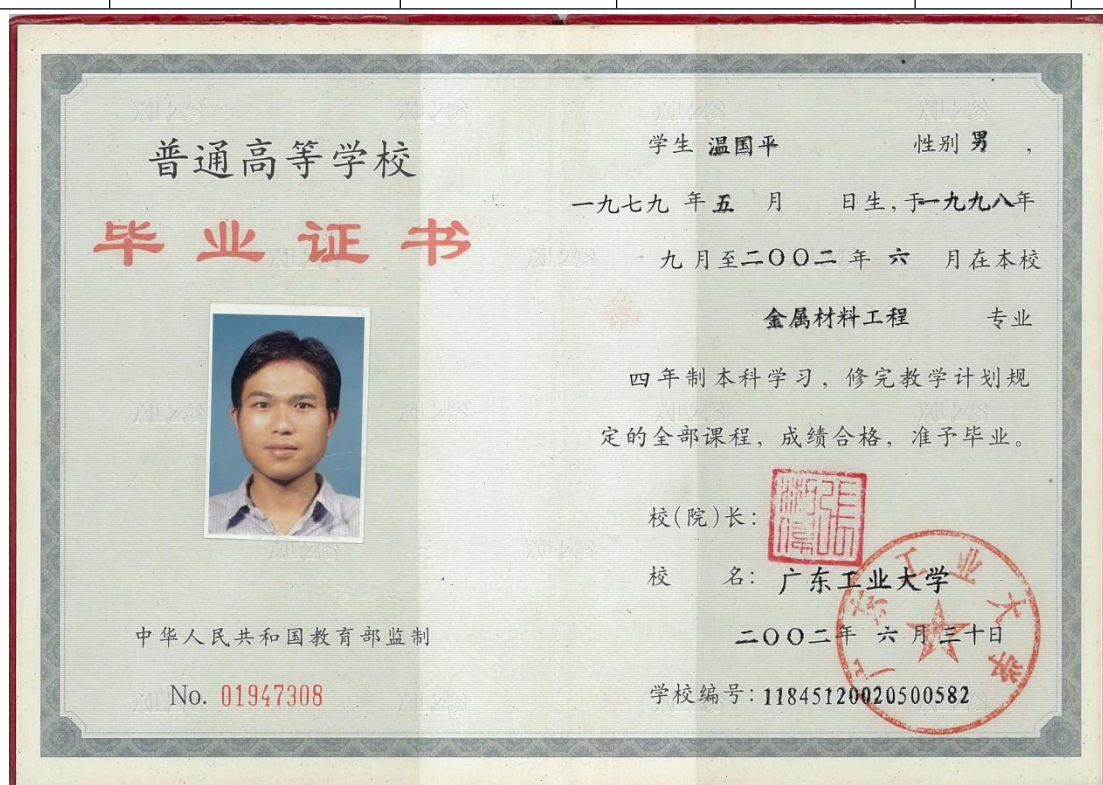 普通高等学校
毕业证书
中华人民共和国教育部监制
No. 01947308
学生 温国平 性别 男 ,
一九七九 年 五 月 日生, 于一九九八年
九 月至二〇〇二 年 六 月在本校
金属材料工程 专业
四年制本科学习, 修完教学计划规
定的全部课程, 成绩合格, 准予毕业。
校(院)长:
校 名: 广东工业大学
二〇〇二年 六 月 三十日
学校编号: 118451200205005​82
广东工业大学